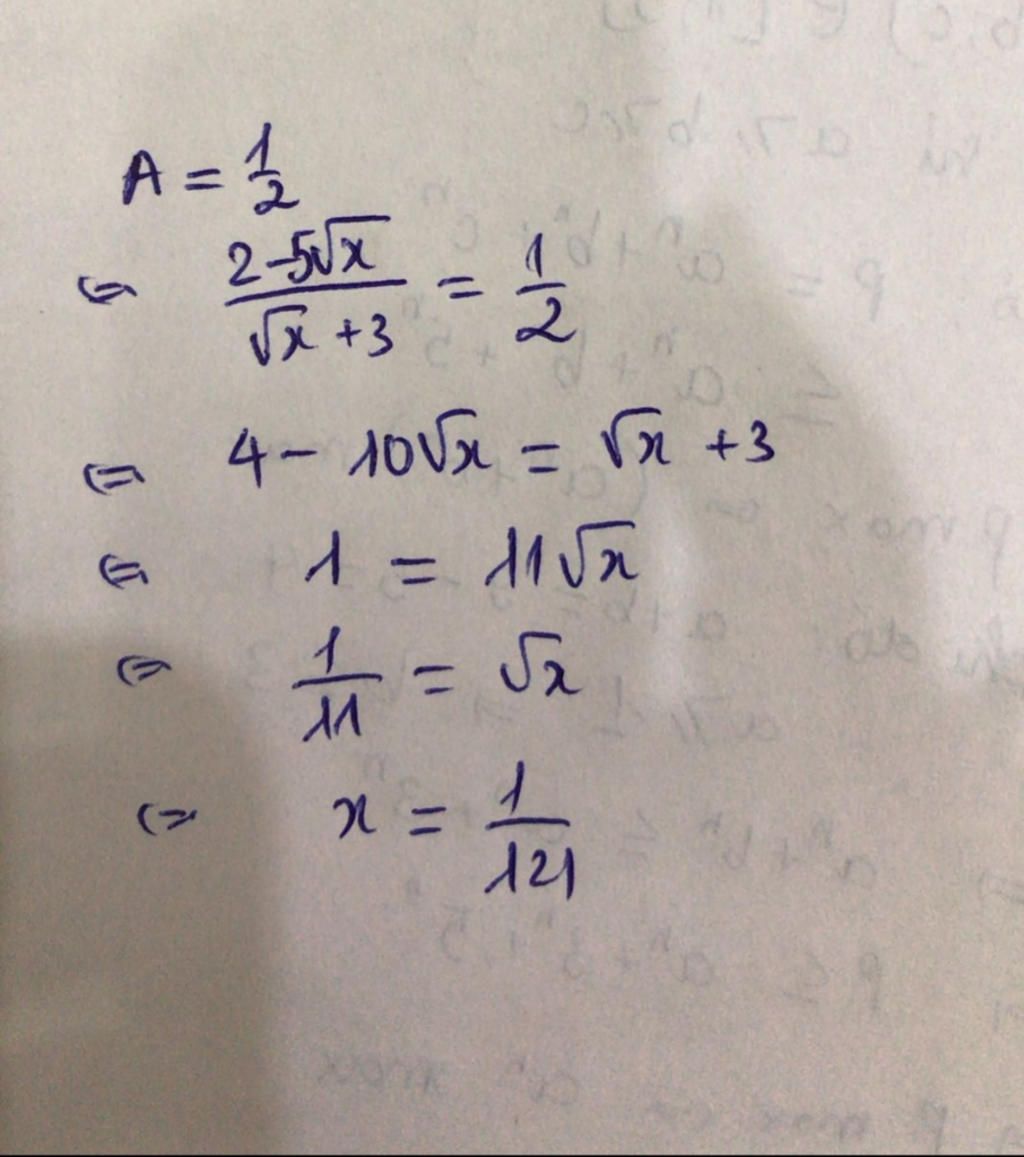 A = 1/2
⇔ (2-5√x)/(√x+3) = 1/2
⇔ 4 - 10√x = √x + 3
⇔ 1 = 11√x
⇔ 1/11 = √x
⇔ x = 1/121